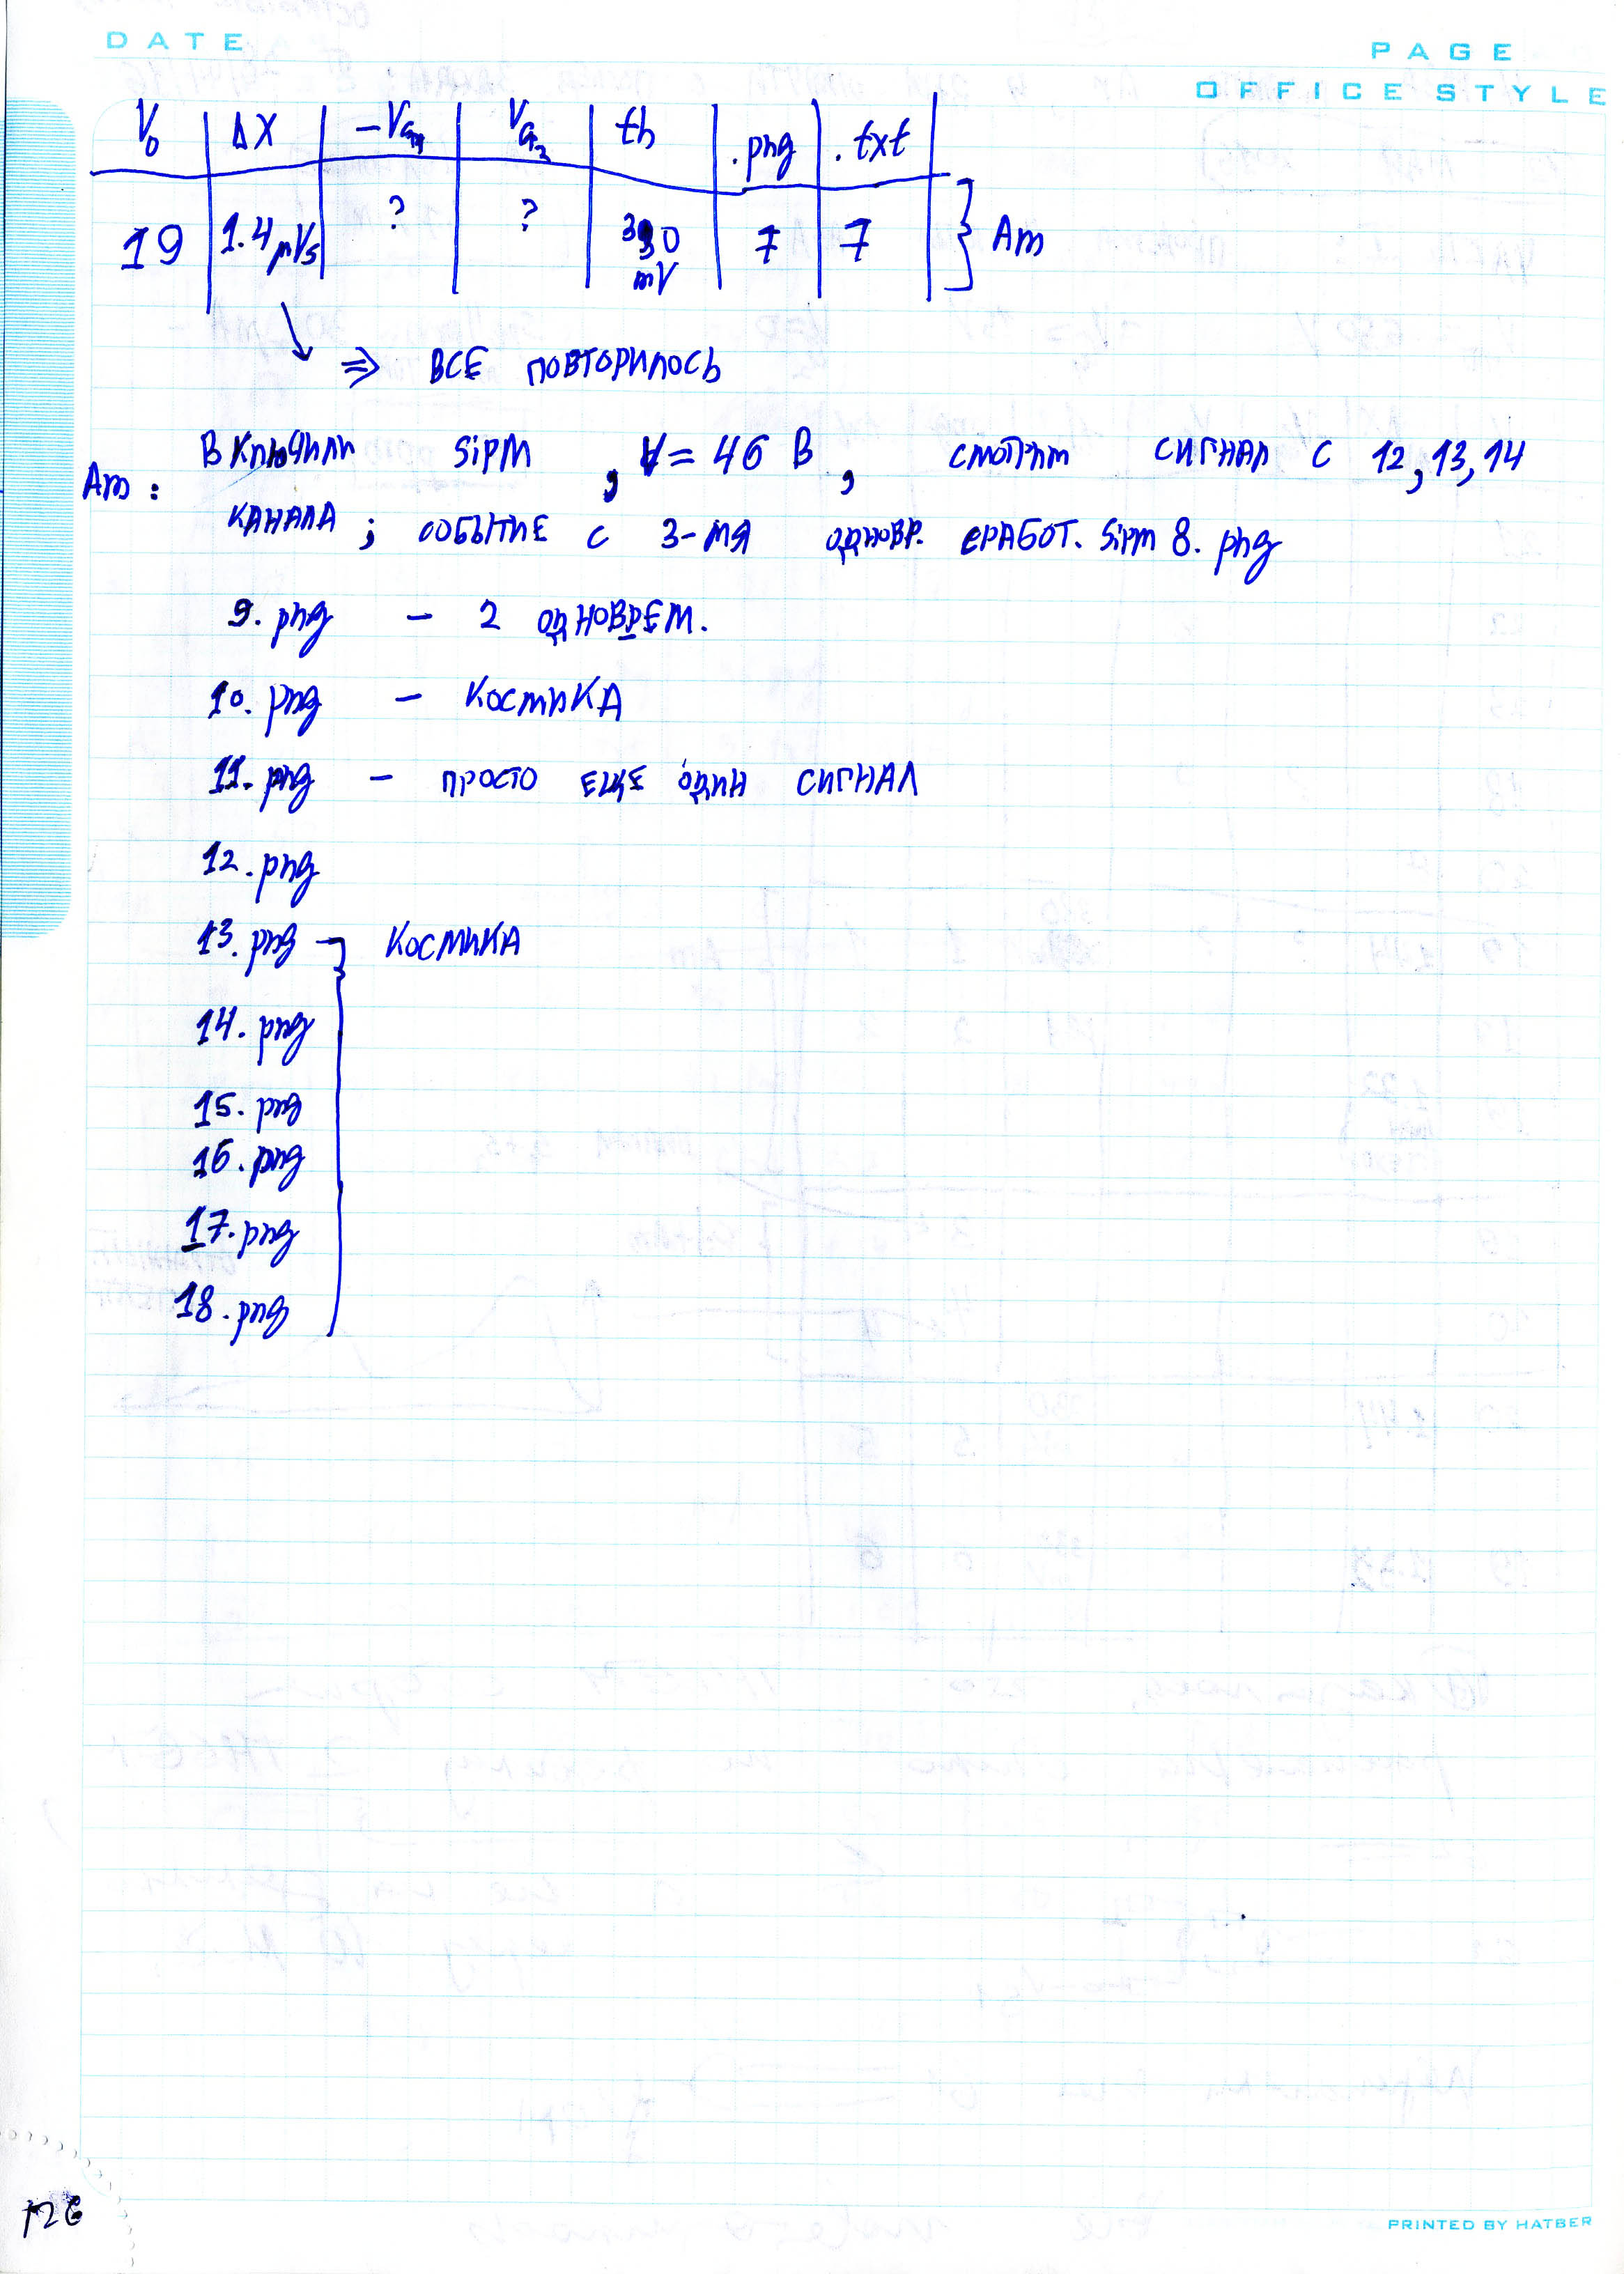 DATE
PAGE
OFFICE STYLE
V₀ | ΔX | –V_G1 | V_G2 | th | .png | .txt
19 | 1.4 μVs | ? | ? | 330 mV | 7 | 7 } Am
⇒ ВСЕ ПОВТОРИЛОСЬ
Am: ВКЛЮЧИЛИ SiPM, V = 46 В, СМОТРИМ СИГНАЛ С 12, 13, 14
КАНАЛА; СОБЫТИЕ С 3-МЯ ОДНОВР. СРАБОТ. SiPM 8. png
9. png – 2 ОДНОВРЕМ.
10. png – КОСМИКА
11. png – ПРОСТО ЕЩЕ ОДИН СИГНАЛ
12. png
13. png КОСМИКА
14. png
15. png
16. png
17. png
18. png
126
PRINTED BY HATBER